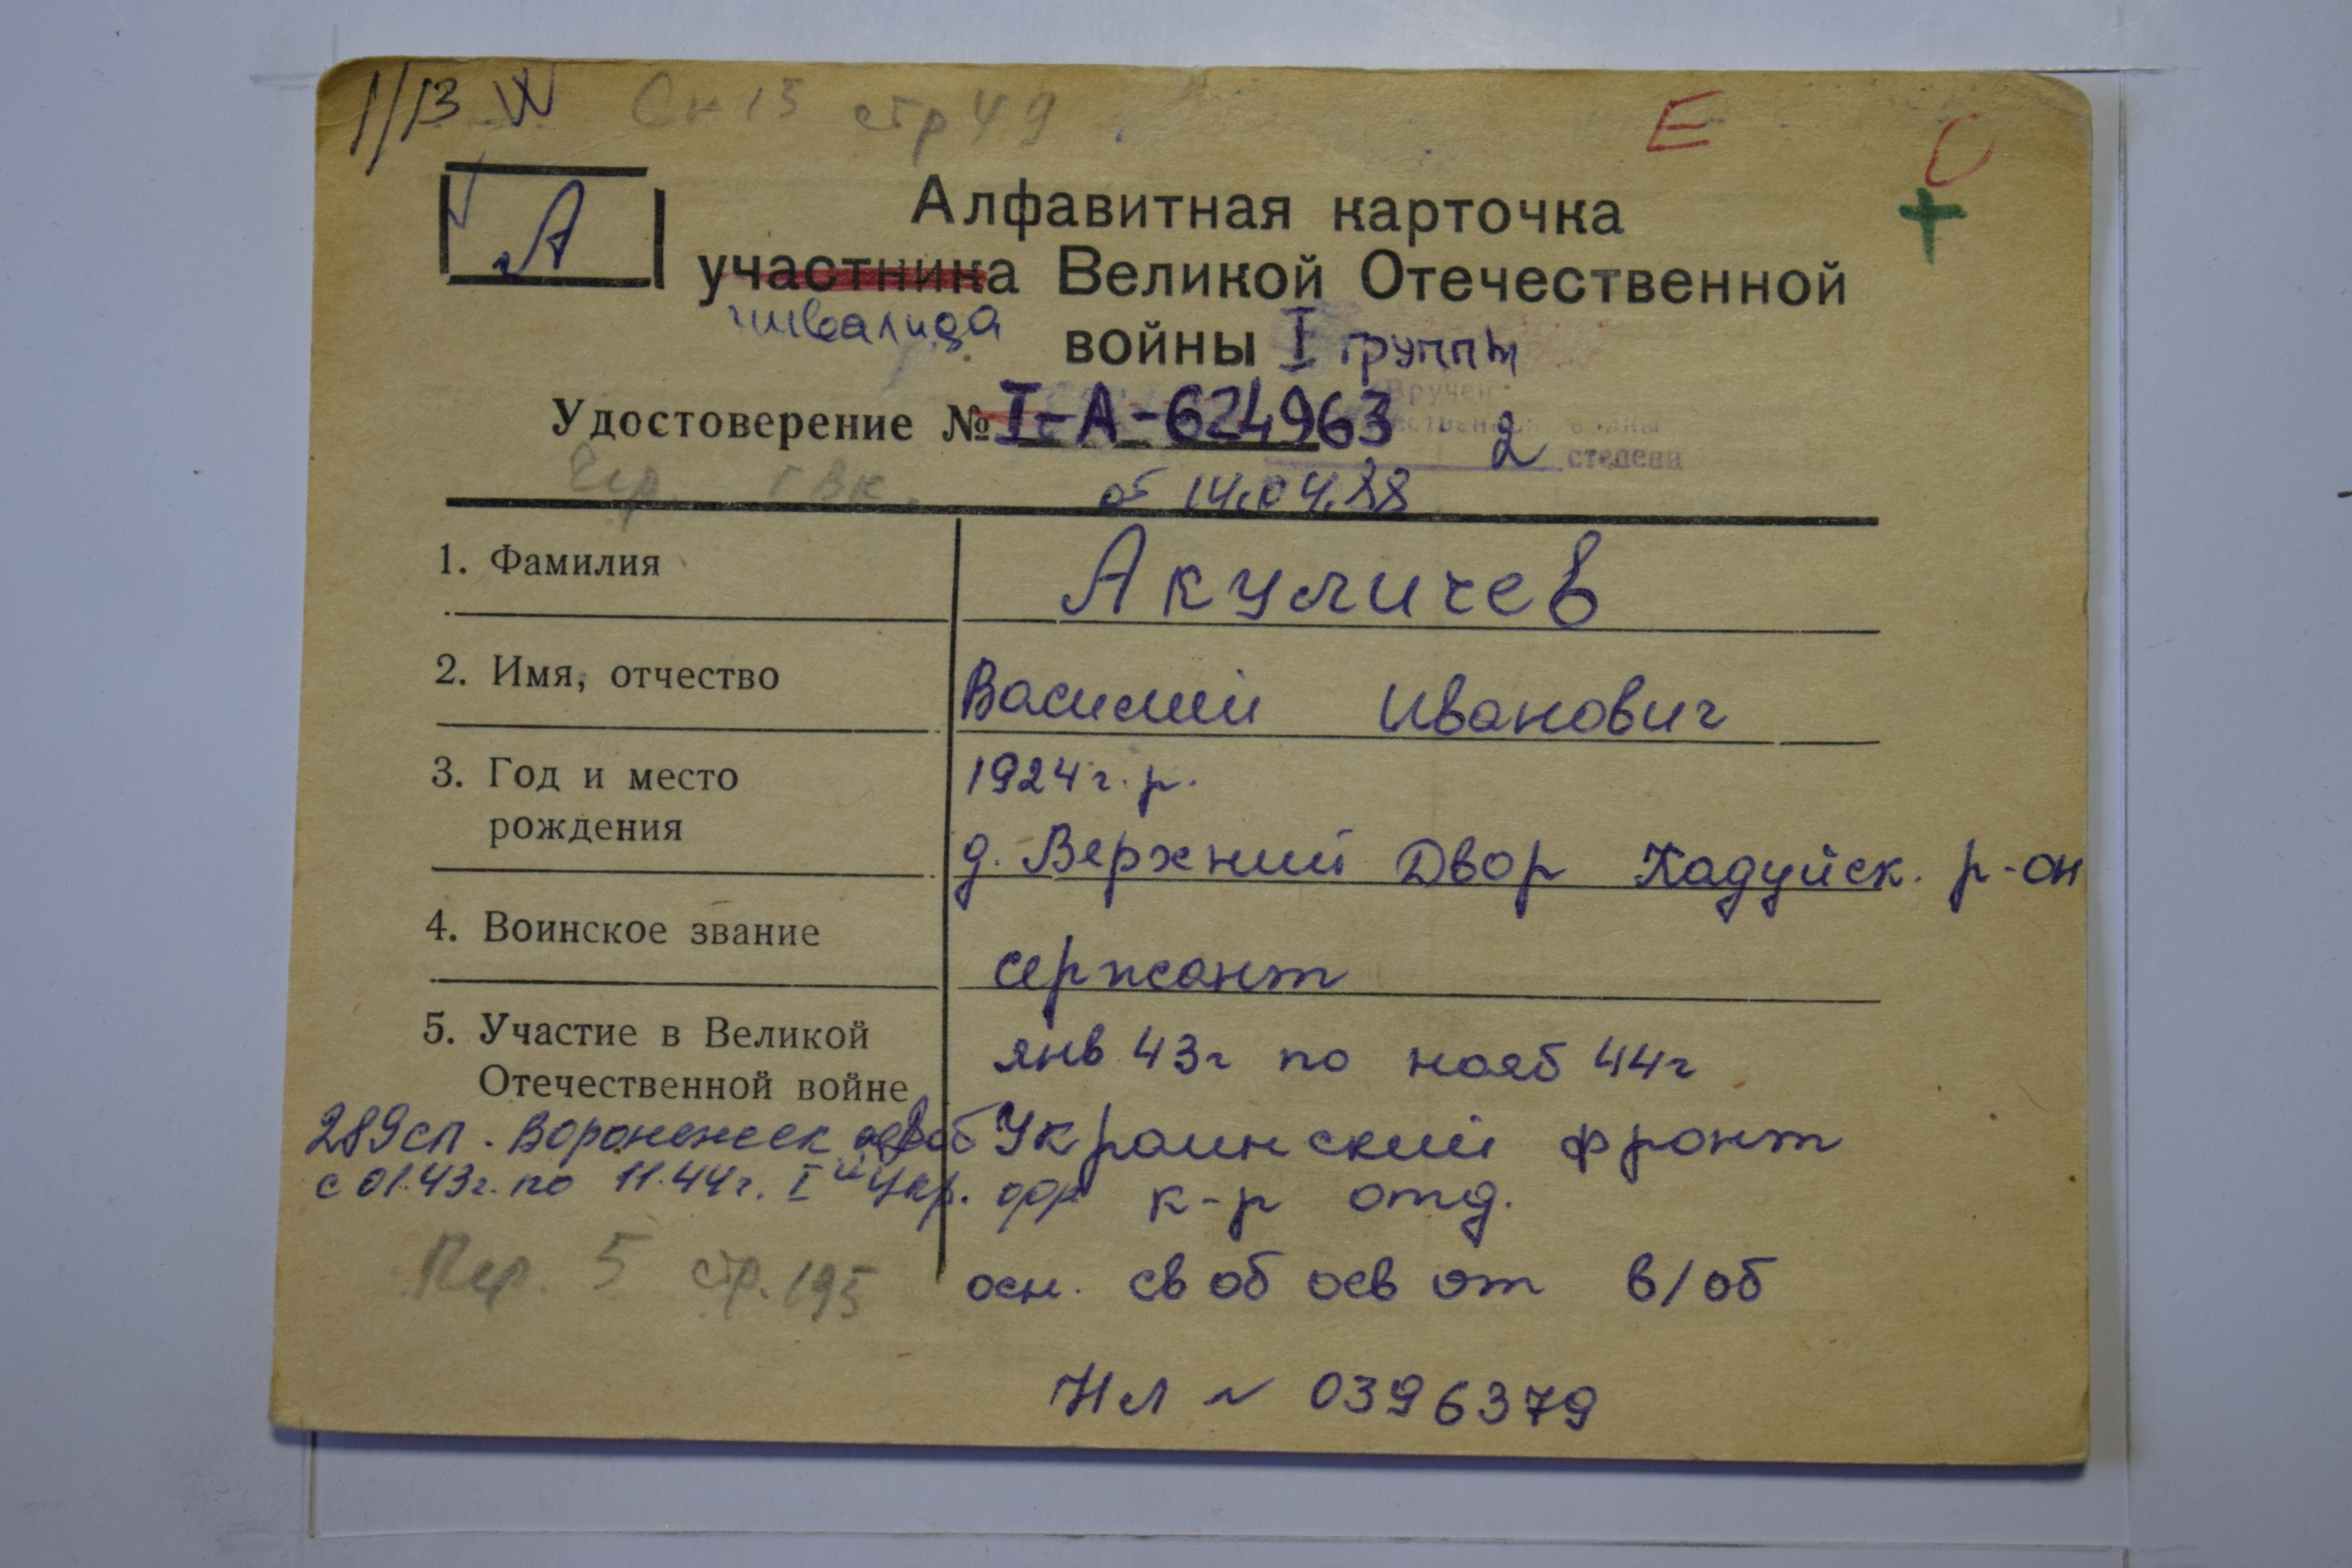 1/13 W Сп 13 стр 49
Е
А
Алфавитная карточка
участника Великой Отечественной
инвалида
войны I группы
Вручен
Удостоверение № I-А-624963
2 степени
от 14.04.88
1. Фамилия
Акуличев
2. Имя, отчество
Василий Иванович
3. Год и место
рождения
1924 г. р.
д. Верхний Двор Кадуйск. р-он
4. Воинское звание
сержант
5. Участие в Великой
Отечественной войне
янв 43г по нояб 44г
289сп. Воронежск
Украинский фронт
с 01.43г. по 11.44г. I й Укр. фр.
к-р отд.
стр. 195
осн. св об осв от в/об
Нл № 0396379